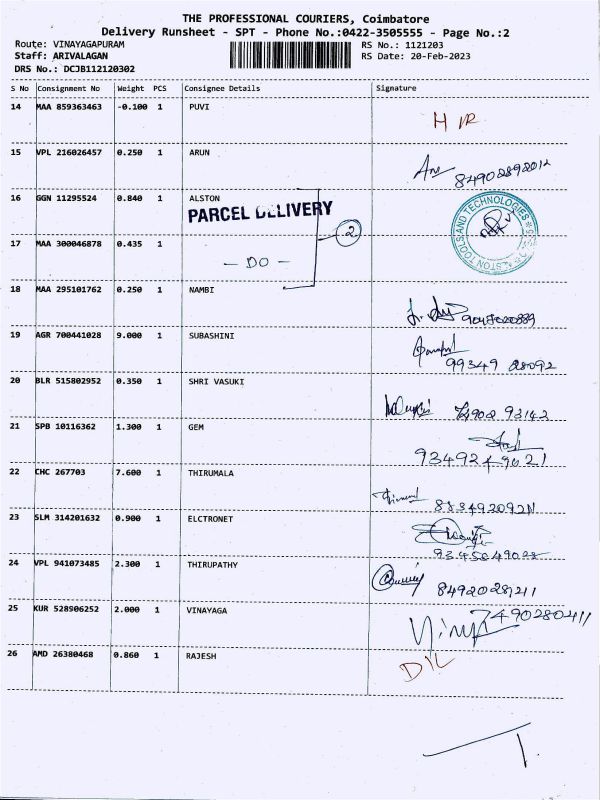 THE PROFESSIONAL COURIERS, Coimbatore
Delivery Runsheet - SPT - Phone No.:0422-3505555 - Page No.:2
Route: VINAYAGAPURAM RS No.: 1121203
Staff: ARIVALAGAN RS Date: 20-Feb-2023
DRS No.: DCJB112120302
S No Consignment No Weight PCS Consignee Details Signature
14 MAA 859363463 -0.100 1 PUVI
15 VPL 216026457 0.250 1 ARUN 84902892012
16 GGN 11295524 0.840 1 ALSTON
PARCEL DELIVERY
2
17 MAA 300046878 0.435 1
- DO -
ALSTON TOOLS AND TECHNOLOGIES
18 MAA 295101762 0.250 1 NAMBI
19 AGR 700441028 9.000 1 SUBASHINI 99349 28092
20 BLR 515802952 0.350 1 SHRI VASUKI
21 SPB 10116362 1.300 1 GEM
22 CHC 267703 7.600 1 THIRUMALA
23 SLM 314201632 0.900 1 ELCTRONET
24 VPL 941073485 2.300 1 THIRUPATHY
25 KUR 528906252 2.000 1 VINAYAGA 7490280411
26 AMD 26380468 0.860 1 RAJESH D/L